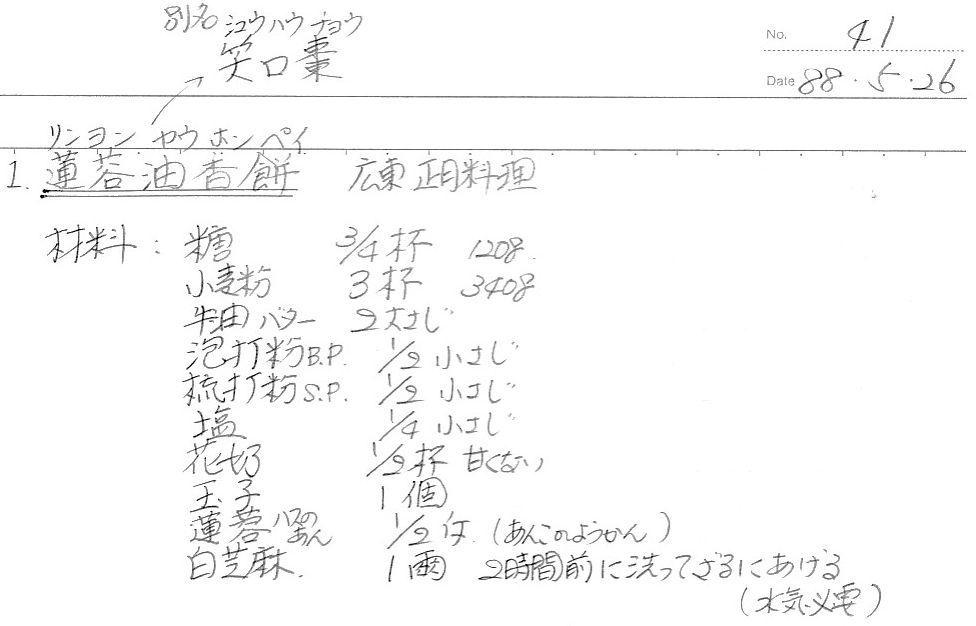 別名 シュウハウチョウ
笑口棗
No. 41
Date 88・5・26
リンヨン ヤウホンペイ
1. 蓮蓉油香餅 広東正月料理
材料: 糖 3/4杯 120g.
小麦粉 3杯 340g
牛油 バター 2大さじ
泡打粉 B.P. 1/2 小さじ
梳打粉 S.P. 1/2 小さじ
塩 1/4 小さじ
花奶 1/2杯 甘くない
玉子 1個
蓮蓉 ハスのあん 1/2 (あんこのようかん)
白芝麻. 1両 2時間前に洗ってざるにあげる
(水気必要)